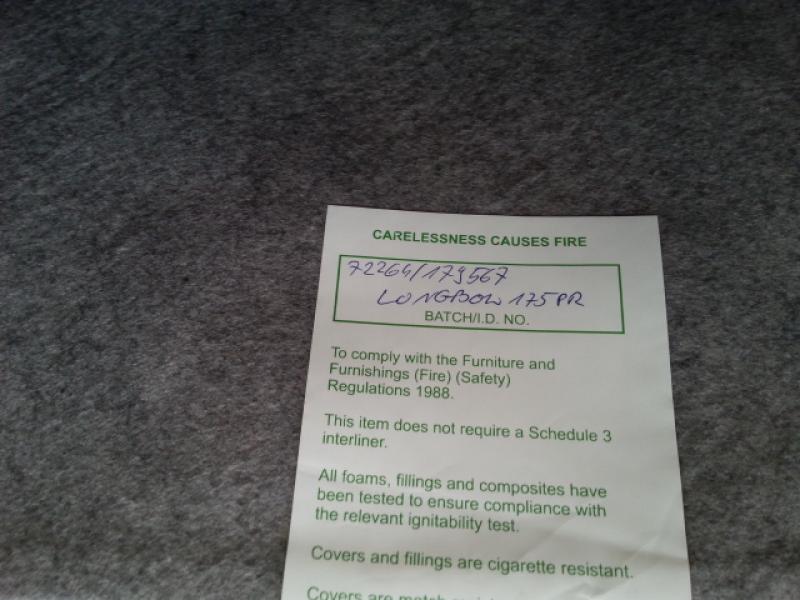 CARELESSNESS CAUSES FIRE
72264/179567
LONGBOW 175PR
BATCH/I.D. NO.
To comply with the Furniture and
Furnishings (Fire) (Safety)
Regulations 1988.
This item does not require a Schedule 3
interliner.
All foams, fillings and composites have
been tested to ensure compliance with
the relevant ignitability test.
Covers and fillings are cigarette resistant.
Covers are match